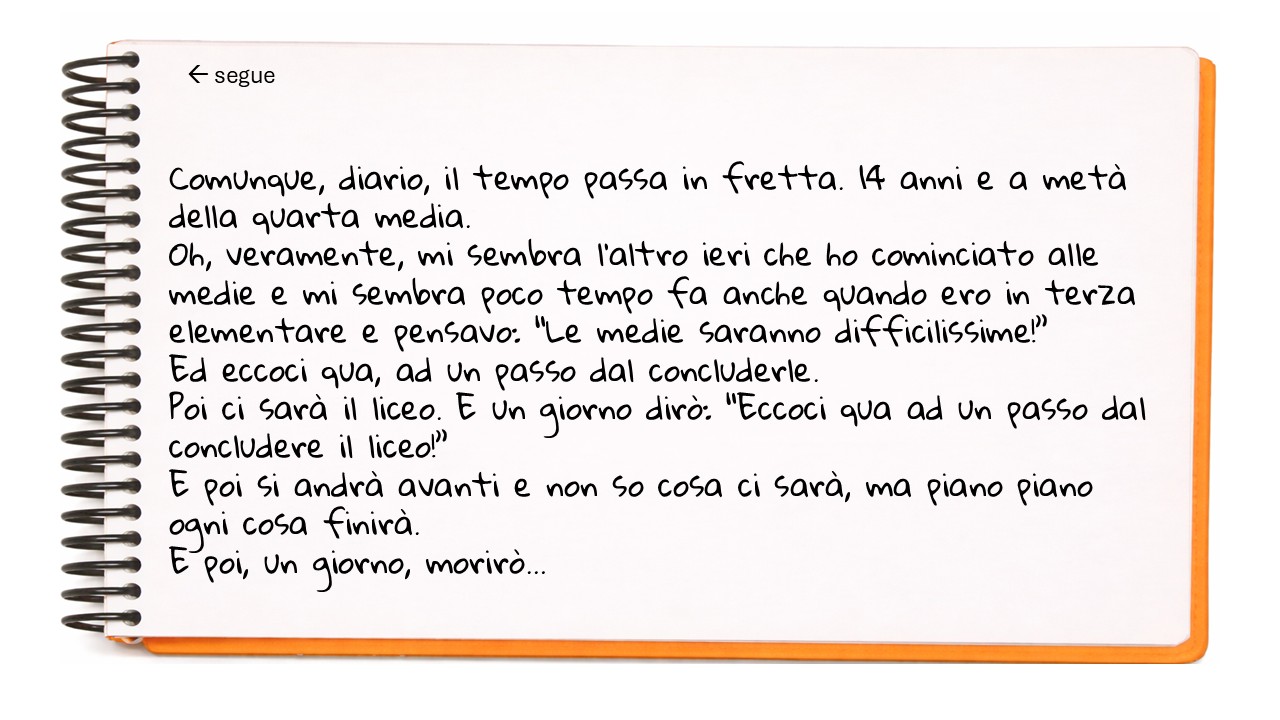 ← segue
Comunque, diario, il tempo passa in fretta. 14 anni e a metà
della quarta media.
Oh, veramente, mi sembra l'altro ieri che ho cominciato alle
medie e mi sembra poco tempo fa anche quando ero in terza
elementare e pensavo: “Le medie saranno difficilissime!”
Ed eccoci qua, ad un passo dal concluderle.
Poi ci sarà il liceo. E un giorno dirò: “Eccoci qua ad un passo dal
concludere il liceo!”
E poi si andrà avanti e non so cosa ci sarà, ma piano piano
ogni cosa finirà.
E poi, un giorno, morirò...